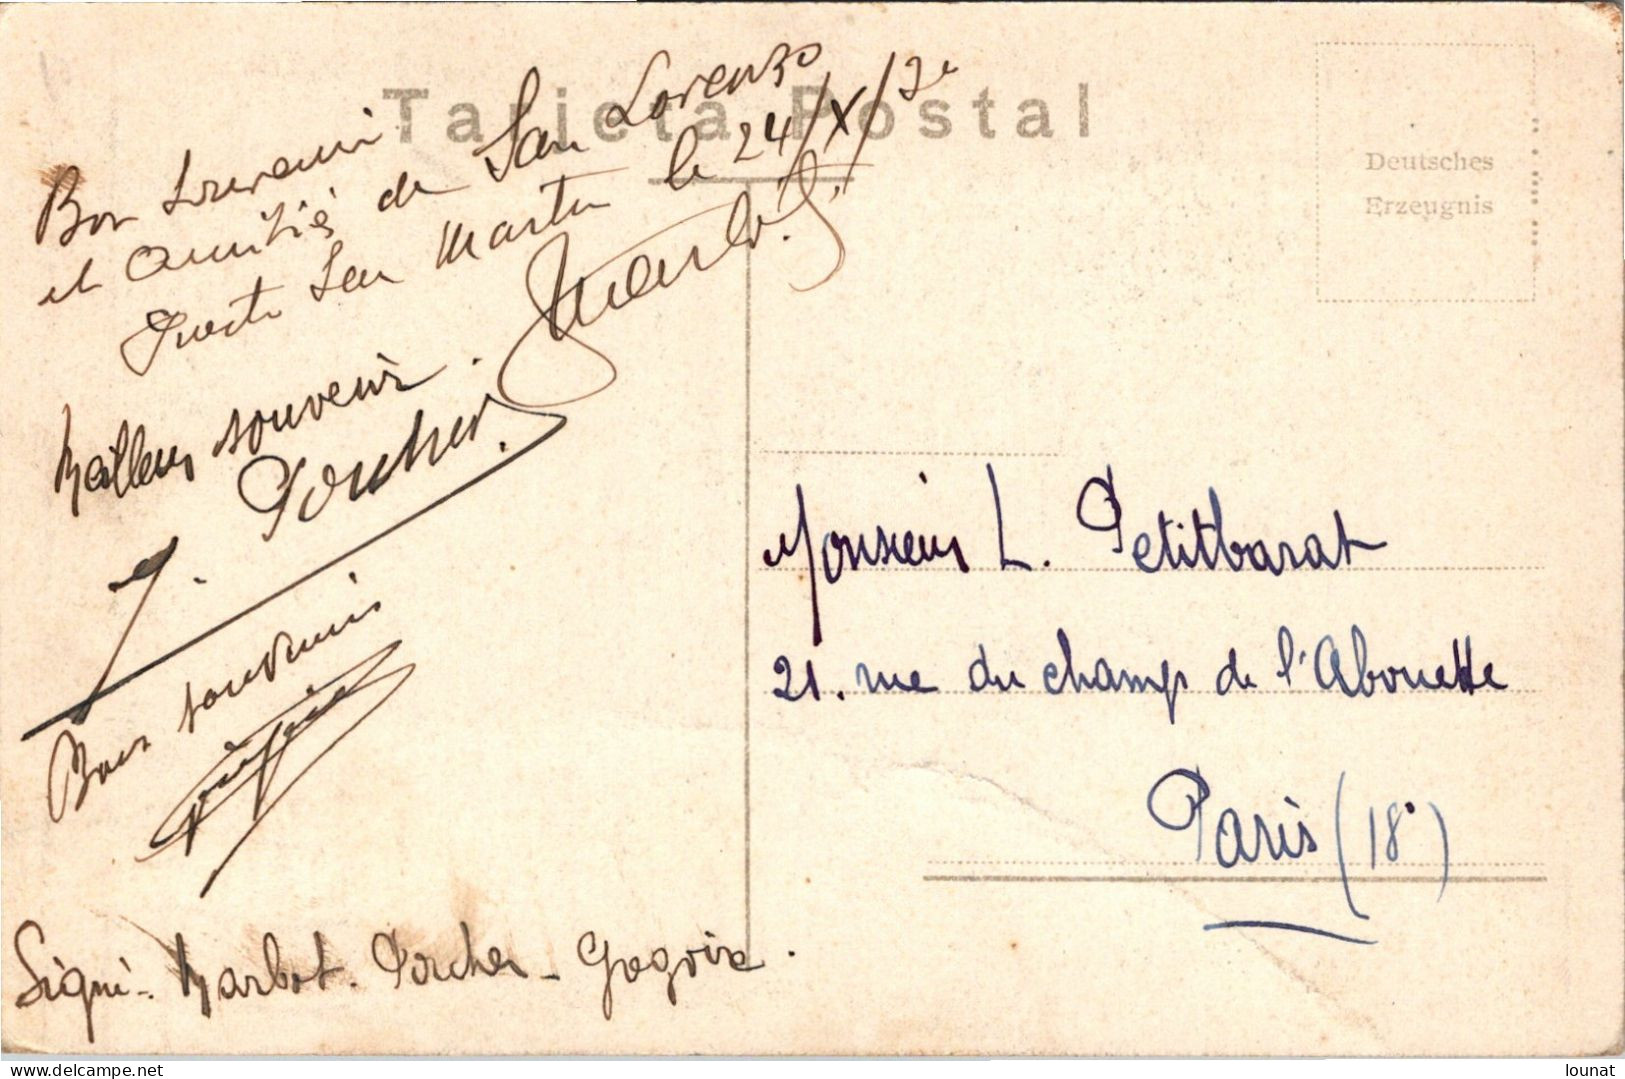 Tarjeta Postal
Bon Souvenir
et Amitiés de San Lorenzo
Puerto San Martin le 24/X/
Meilleur souvenir.
J. Porcher.
Bons souvenirs
Signé - Marbot - Porcher - Gogoix.
Deutsches
Erzeugnis
Monsieur L. Petitbarat
21. rue du champ de l'Alouette
Paris (18e)
delcampe.net
lounat